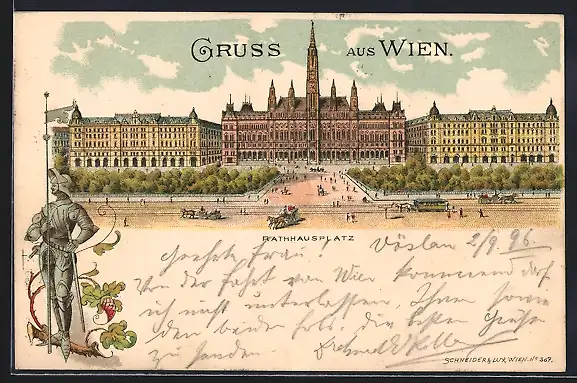 GRUSS AUS WIEN.
RATHHAUSPLATZ
Vöslau 2/9. 96.
Geehrte Frau!
Von der Fahrt von Wien kommend darf
ich nicht unterlassen, Ihnen sowie
den beiden Frls. die besten Grüße
zu senden.
SCHNEIDER & LUX, WIEN. No 367.